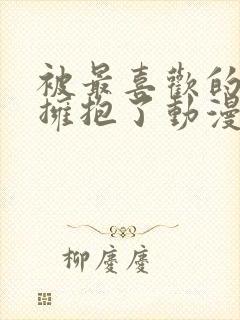 被最喜歡的
擁抱了動漫
柳慶慶